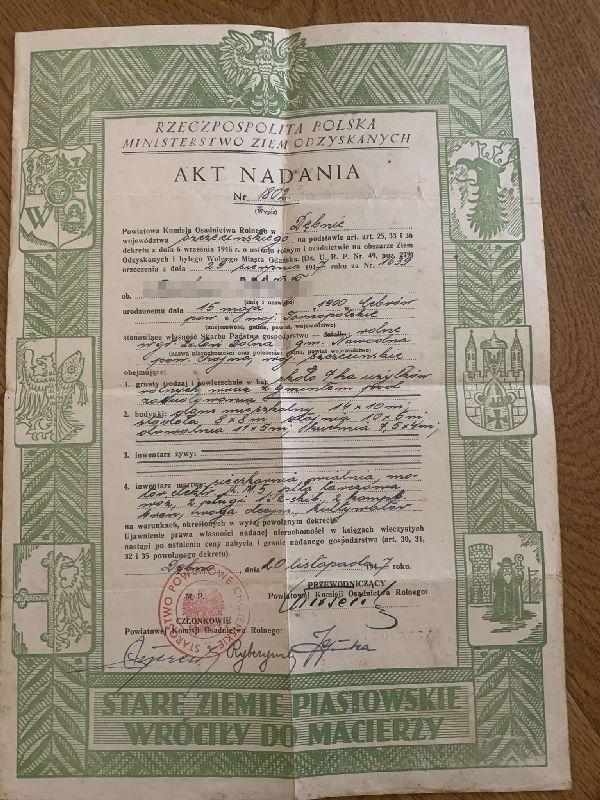 RZECZPOSPOLITA POLSKA
MINISTERSTWO ZIEM ODZYSKANYCH
AKT NADANIA
Nr. 1802
(Wypis)
Powiatowa Komisja Osadnictwa Rolnego w Dębnie
województwa szczecińskiego na podstawie art. art. 25, 33 i 36
dekretu z dnia 6 września 1946 r. o ustroju rolnym i osadnictwie na obszarze Ziem
Odzyskanych i byłego Wolnego Miasta Gdańska (Dz. U. R. P. Nr. 49, poz. 279)
orzeczenia z dnia 29 sierpnia 1947 roku za Nr. 1639
nadaje
ob.
(imię i nazwisko)
urodzonemu dnia 15 maja 1900
pow. i woj. Tarnopolskie
(miejscowość, gmina, powiat, województwo)
stanowiące własność Skarbu Państwa gospodarstwo rolne
gm. Nawodna
(nazwa nieruchomości oraz położenie: gmina, powiat, województwo)
pow. Chojna, woj. szczecińskie
obejmujące:
1. grunty (rodzaj i powierzchnia w ha) około 7 ha użytków
rolnych wraz z gruntem pod
zabudowania
2. budynki: dom mieszkalny 14 x 10 m,
stodoła 8 x 8 m stajnia 10 x 6 m,
11 x 5 m, 7,5 x 4 m,
3. inwentarz żywy:
4. inwentarz martwy: sieczkarnia, mo-
tor elektr. piła tarczowa
wóz, 2 pługi
kultywator
na warunkach, określonych w wyżej powołanym dekrecie.
Ujawnienie prawa własności nadanej nieruchomości w księgach wieczystych
nastąpi po ustaleniu ceny nabycia i granic nadanego gospodarstwa (art. 30, 31,
32 i 35 powołanego dekretu).
Dębno, dnia 20 listopada 1947 roku.
PRZEWODNICZĄCY
M. P. Powiatowej Komisji Osadnictwa Rolnego:
STAROSTWO POWIATOWE
CZŁONKOWIE
Powiatowej Komisji Osadnictwa Rolnego:
STARE ZIEMIE PIASTOWSKIE
WRÓCIŁY DO MACIERZY